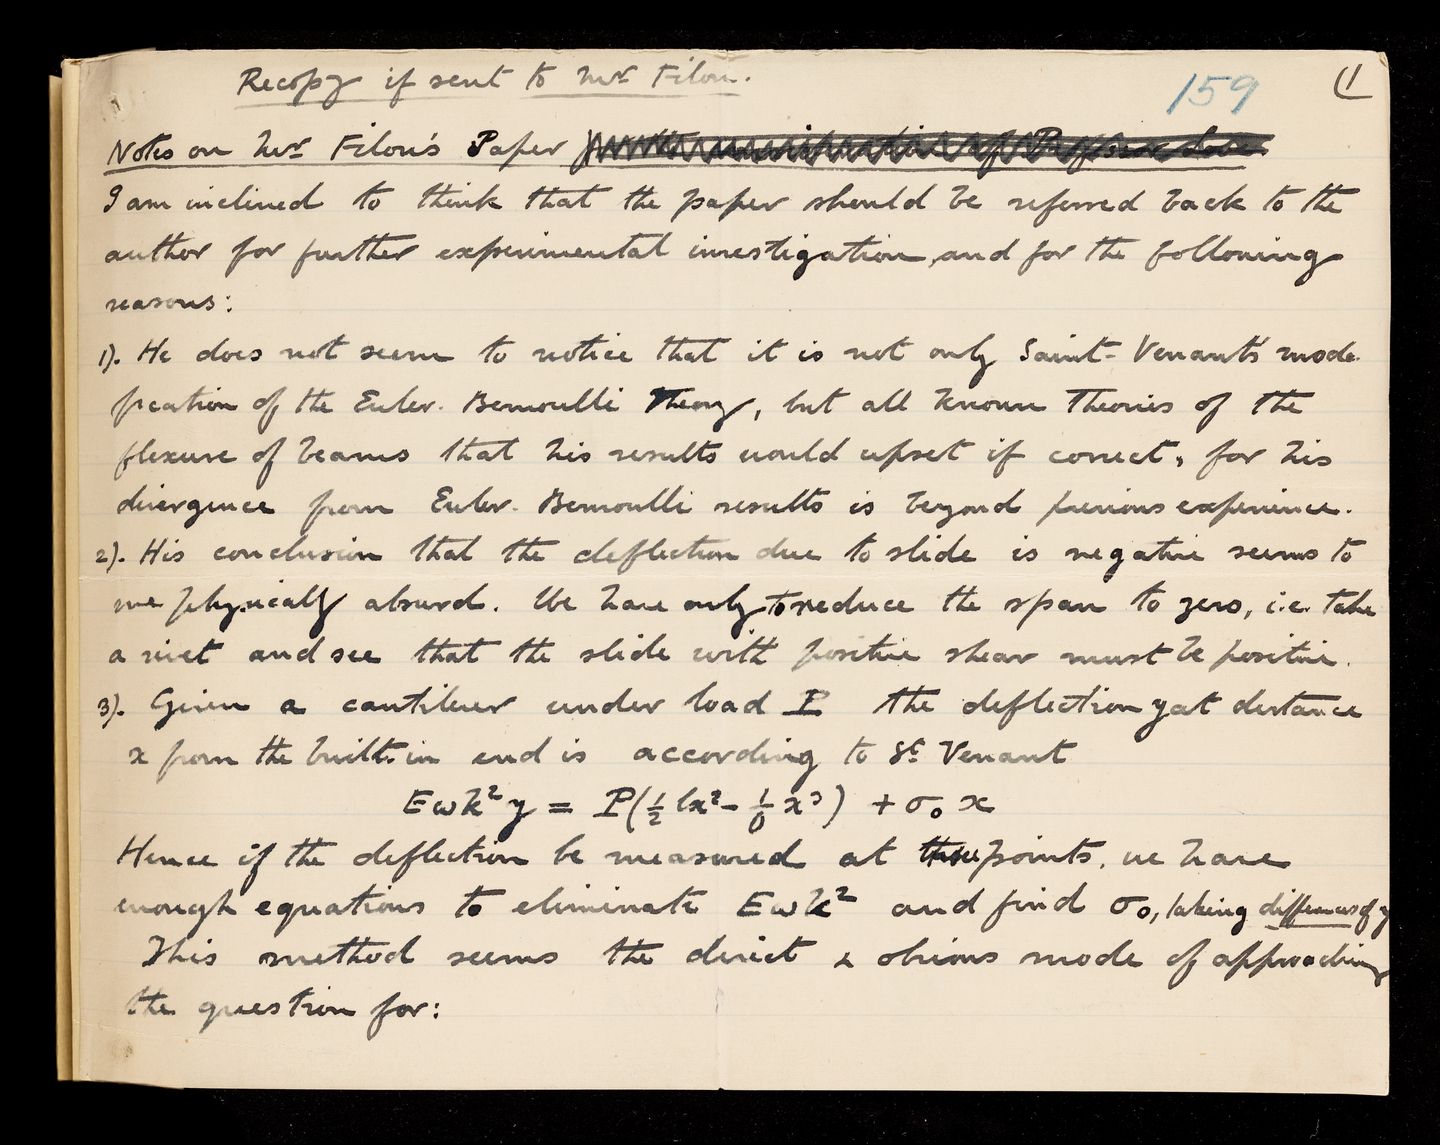 Recopy if sent to Mr Filon.
159
1
Notes on Mr Filon's Paper
I am inclined to think that the paper should be referred back to the
author for further experimental investigation, and for the following
reasons:
1). He does not seem to notice that it is not only Saint-Venant's modi-
fication of the Euler-Bernoulli Theory, but all known Theories of the
flexure of beams that his results would upset if correct, for his
divergence from Euler-Bernoulli results is beyond previous experience.
2). His conclusion that the deflection due to slide is negative seems to
me physically absurd. We have only to reduce the span to zero, i.e. take
a rivet and see that the slide with positive shear must be positive.
3). Given a cantilever under load P the deflection y at distance
x from the built-in end is according to St Venant
Eωk² y = P(½ lx² - ⅙ x³) + σ₀ x
Hence if the deflection be measured at three points, we have
enough equations to eliminate Eωk² and find σ₀, taking differences of y
This method seems the direct & obvious mode of approaching
the question for: